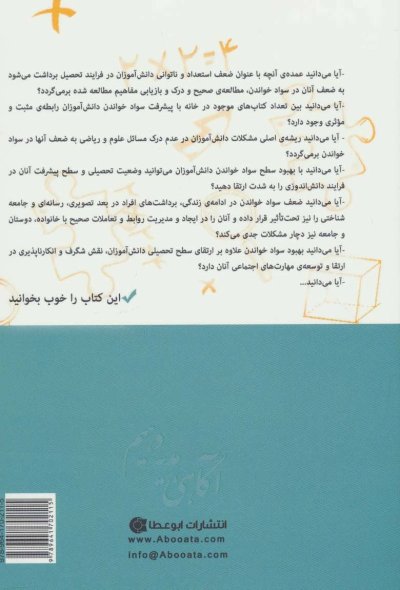 ۲ × ۲ = ۴
-آیا می‌دانید عمده‌ی آنچه با عنوان ضعف استعداد و ناتوانی دانش‌آموزان در فرایند تحصیل برداشت می‌شود
به ضعف آنان در سواد خواندن، مطالعه‌ی صحیح و درک و بازیابی مفاهیم مطالعه شده برمی‌گردد؟
-آیا می‌دانید بین تعداد کتاب‌های موجود در خانه با پیشرفت سواد خواندن دانش‌آموزان رابطه‌ی مثبت و
مؤثری وجود دارد؟
- آیا می‌دانید ریشه‌ی اصلی مشکلات دانش‌آموزان در عدم درک مسائل علوم و ریاضی به ضعف آنها در سواد
خواندن برمی‌گردد؟
-آیا می‌دانید با بهبود سطح سواد خواندن دانش‌آموزان می‌توانید وضعیت تحصیلی و سطح پیشرفت آنان در
فرایند دانش‌اندوزی را به شدت ارتقا دهید؟
-آیا می‌دانید ضعف سواد خواندن در ادامه‌ی زندگی، برداشت‌های افراد در بعد تصویری، رسانه‌ای و جامعه
شناختی را نیز تحت‌تأثیر قرار داده و آنان را در ایجاد و مدیریت روابط و تعاملات صحیح با خانواده، دوستان
و جامعه نیز دچار مشکلات جدی می‌کند؟
-آیا می‌دانید بهبود سواد خواندن علاوه بر ارتقای سطح تحصیلی دانش‌آموزان، نقش شگرف و انکارناپذیری در
ارتقا و توسعه‌ی مهارت‌های اجتماعی آنان دارد؟
-آیا می‌دانید...
این کتاب را خوب بخوانید
آگاهی می‌دهیم
انتشارات ابوعطا
www.Abooata.com
info@Abooata.com
9789641702115